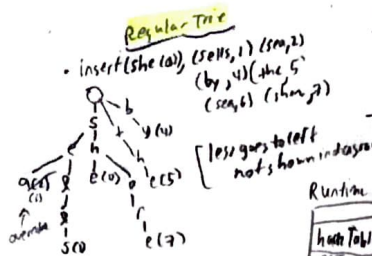 Regular Trie
• insert (she (0)), (sells, 1) (sea, 2)
(by, 4) (the 5
(sea, 6) (shore, 7)
b
s
t
y (4)
h
h
e
e (0)
o
e (5)
l
l
r
(1)
override
s (1)
e (7)
[ less goes to left
not shown in diagram
Runtime
hash Tabl